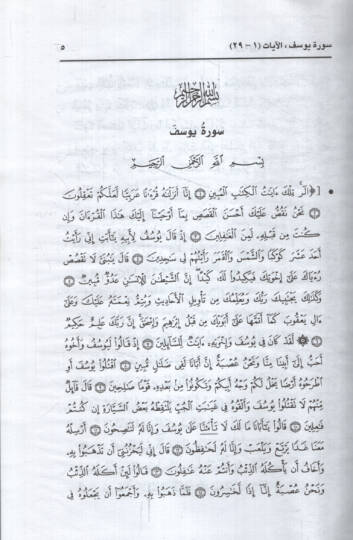 سورة يوسف، الآيات (١ - ٢٩) ٥
بسم الله الرحمن الرحيم
سورة يوسف
بِسْمِ اللَّهِ الرَّحْمَٰنِ الرَّحِيمِ
• [﴿الٓر تِلْكَ ءَايَٰتُ الْكِتَٰبِ الْمُبِينِ ۝١ إِنَّآ أَنزَلْنَٰهُ قُرْءَٰنًا عَرَبِيًّا لَّعَلَّكُمْ تَعْقِلُونَ
۝٢ نَحْنُ نَقُصُّ عَلَيْكَ أَحْسَنَ الْقَصَصِ بِمَآ أَوْحَيْنَآ إِلَيْكَ هَٰذَا الْقُرْءَانَ وَإِن
كُنتَ مِن قَبْلِهِۦ لَمِنَ الْغَٰفِلِينَ ۝٣ إِذْ قَالَ يُوسُفُ لِأَبِيهِ يَٰٓأَبَتِ إِنِّى رَأَيْتُ
أَحَدَ عَشَرَ كَوْكَبًا وَالشَّمْسَ وَالْقَمَرَ رَأَيْتُهُمْ لِى سَٰجِدِينَ ۝٤ قَالَ يَٰبُنَىَّ لَا تَقْصُصْ
رُءْيَاكَ عَلَىٰٓ إِخْوَتِكَ فَيَكِيدُوا۟ لَكَ كَيْدًا إِنَّ الشَّيْطَٰنَ لِلْإِنسَٰنِ عَدُوٌّ مُّبِينٌ ۝٥
وَكَذَٰلِكَ يَجْتَبِيكَ رَبُّكَ وَيُعَلِّمُكَ مِن تَأْوِيلِ الْأَحَادِيثِ وَيُتِمُّ نِعْمَتَهُۥ عَلَيْكَ وَعَلَىٰٓ
ءَالِ يَعْقُوبَ كَمَآ أَتَمَّهَا عَلَىٰٓ أَبَوَيْكَ مِن قَبْلُ إِبْرَٰهِيمَ وَإِسْحَٰقَ إِنَّ رَبَّكَ عَلِيمٌ حَكِيمٌ
۝٦ ۞ لَّقَدْ كَانَ فِى يُوسُفَ وَإِخْوَتِهِۦٓ ءَايَٰتٌ لِّلسَّآئِلِينَ ۝٧ إِذْ قَالُوا۟ لَيُوسُفُ وَأَخُوهُ
أَحَبُّ إِلَىٰٓ أَبِينَا مِنَّا وَنَحْنُ عُصْبَةٌ إِنَّ أَبَانَا لَفِى ضَلَٰلٍ مُّبِينٍ ۝٨ اقْتُلُوا۟ يُوسُفَ أَوِ
اطْرَحُوهُ أَرْضًا يَخْلُ لَكُمْ وَجْهُ أَبِيكُمْ وَتَكُونُوا۟ مِنۢ بَعْدِهِۦ قَوْمًا صَٰلِحِينَ ۝٩ قَالَ قَآئِلٌ
مِّنْهُمْ لَا تَقْتُلُوا۟ يُوسُفَ وَأَلْقُوهُ فِى غَيَٰبَتِ الْجُبِّ يَلْتَقِطْهُ بَعْضُ السَّيَّارَةِ إِن كُنتُمْ
فَٰعِلِينَ ۝١٠ قَالُوا۟ يَٰٓأَبَانَا مَا لَكَ لَا تَأْمَ۫نَّا عَلَىٰ يُوسُفَ وَإِنَّا لَهُۥ لَنَٰصِحُونَ ۝١١ أَرْسِلْهُ
مَعَنَا غَدًا يَرْتَعْ وَيَلْعَبْ وَإِنَّا لَهُۥ لَحَٰفِظُونَ ۝١٢ قَالَ إِنِّى لَيَحْزُنُنِىٓ أَن تَذْهَبُوا۟ بِهِۦ
وَأَخَافُ أَن يَأْكُلَهُ الذِّئْبُ وَأَنتُمْ عَنْهُ غَٰفِلُونَ ۝١٣ قَالُوا۟ لَئِنْ أَكَلَهُ الذِّئْبُ
وَنَحْنُ عُصْبَةٌ إِنَّآ إِذًا لَّخَٰسِرُونَ ۝١٤ فَلَمَّا ذَهَبُوا۟ بِهِۦ وَأَجْمَعُوٓا۟ أَن يَجْعَلُوهُ فِى